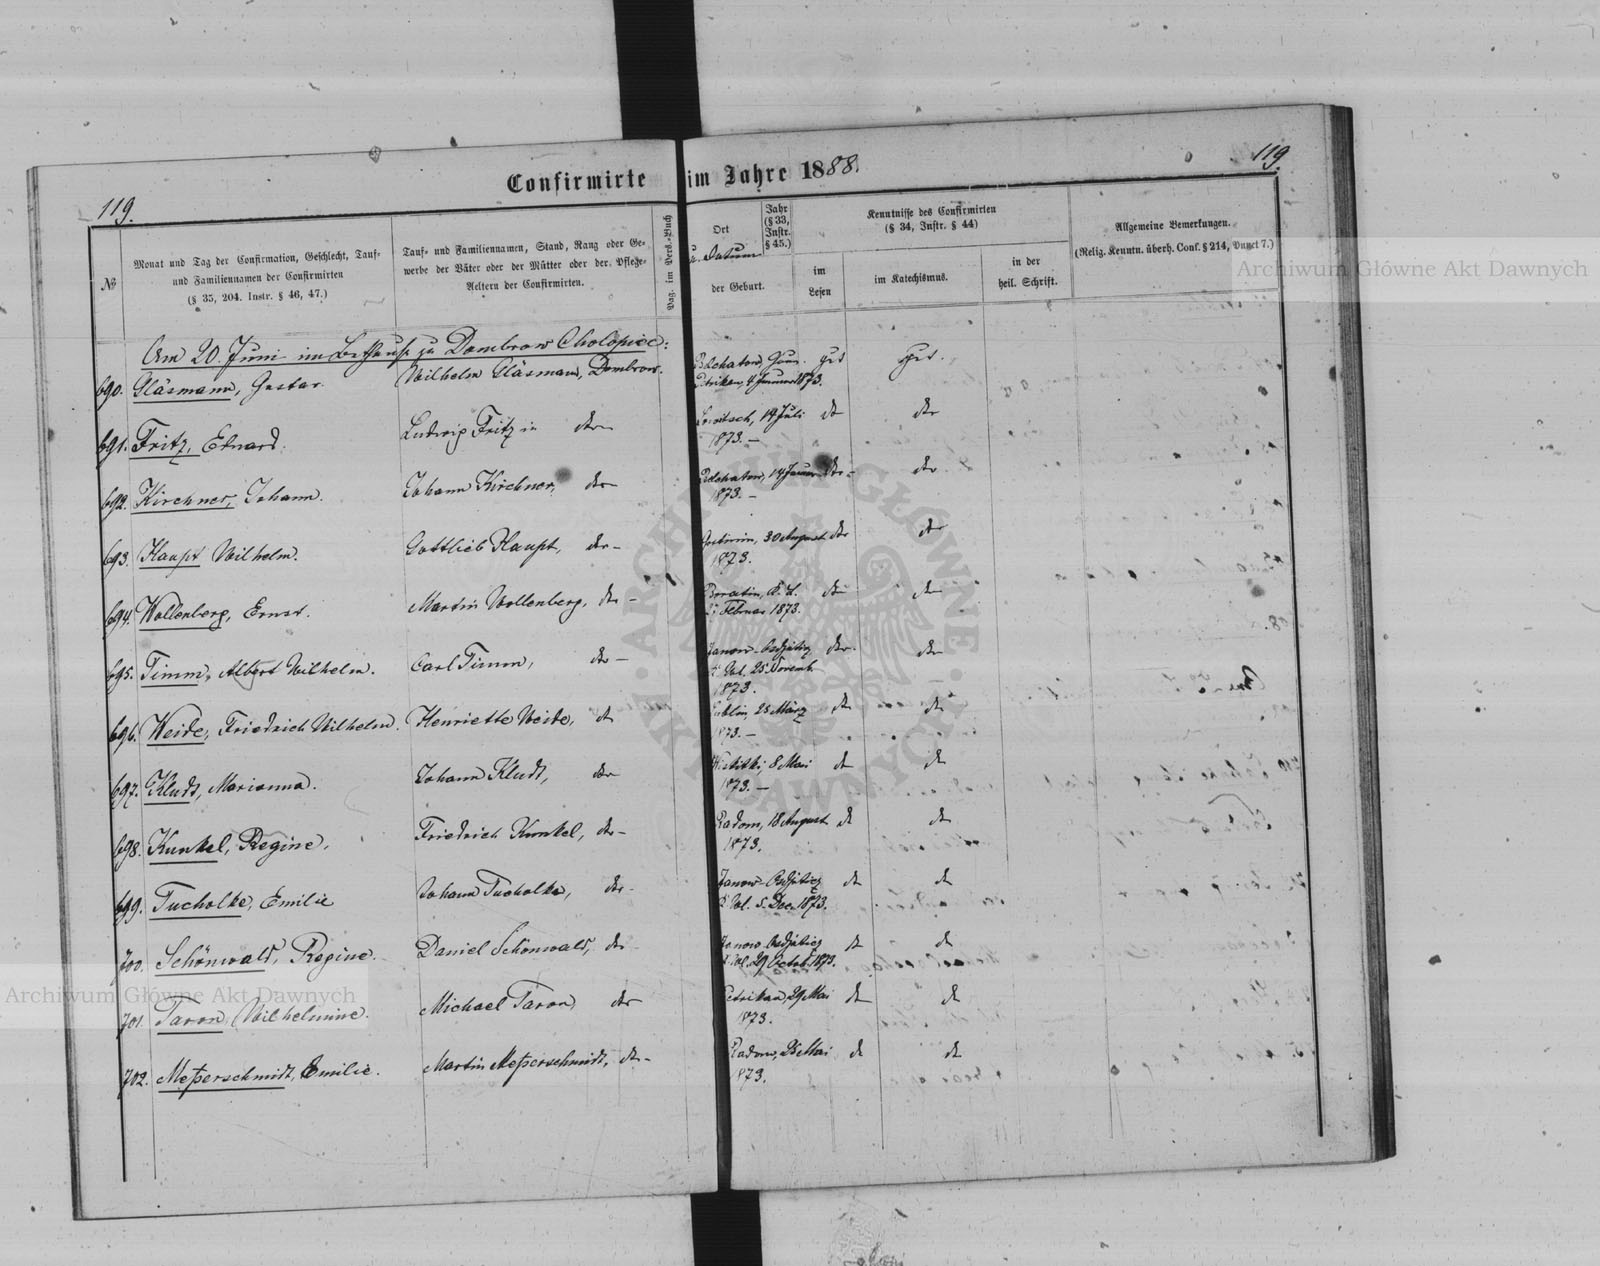 Confirmirte im Jahre 1888.
119.
119.
№
Monat und Tag der Confirmation, Geschlecht, Tauf-
und Familiennamen der Confirmirten
(§ 35, 204. Instr. § 46, 47.)
Tauf- und Familiennamen, Stand, Rang oder Ge-
werbe der Väter oder der Mütter oder der Pflege-
Aeltern der Confirmirten.
Pag. im Pers.-Buch
Ort
u. Datum
der Geburt.
Jahr
(§ 33,
Instr.
§ 45.)
Kenntnisse des Confirmirten
(§ 34, Instr. § 44)
im
Lesen
im Katechismus.
in der
heil. Schrift.
Allgemeine Bemerkungen.
(Relig. Kenntn. überh. Conf. § 214, Punct 7.)
Am 20. Juni im Bethause zu Dombrow Cholopice:
690. Gläsmann, Gustav. Wilhelm Gläsmann, Dombrow. Belchatow, Gouv. gut gut.
Petrikau, 4 Januar 1873.
691. Fritz, Eduard. Ludwig Fritz in do 14 Juli do do
1873. –
692. Kirchner, Johann. Johann Kirchner, do Belchatow, 14 Januar do – do
1873. –
693. Haupt Wilhelm. Gottlieb Haupt, do – 30 August do do
1873.
694. Wollenberg, Ernst. Martin Wollenberg, do – do do
Februar 1873.
695. Timm, Albert Wilhelm. Carl Timm, do – Janow do do
25 Novemb
1873.
696. Weide, Friedrich Wilhelm. Henriette Weide, do Lublin, 25 März do do
1873. –
697. Kludt, Marianna. Johann Kludt, do 8 Mai do do
1873. –
698. Kunkel, Regine. Friedrich Kunkel, do – Radom, 18 August do do
1873.
699. Tucholke, Emilie Johann Tucholke, do – Janow do do
5. Dec. 1873.
700. Schönwald, Regine. Daniel Schönwald, do – Janow do do
29 Octob. 1873.
701. Taron, Wilhelmine. Michael Taron, do Petrikau, 29 Mai do do
1873.
702. Meßerschmidt, Emilie. Martin Meßerschmidt, do – Radom, 25 Mai do do
1873.
Archiwum Główne Akt Dawnych
Archiwum Główne Akt Dawnych
ARCHIWUM GŁÓWNE AKT DAWNYCH